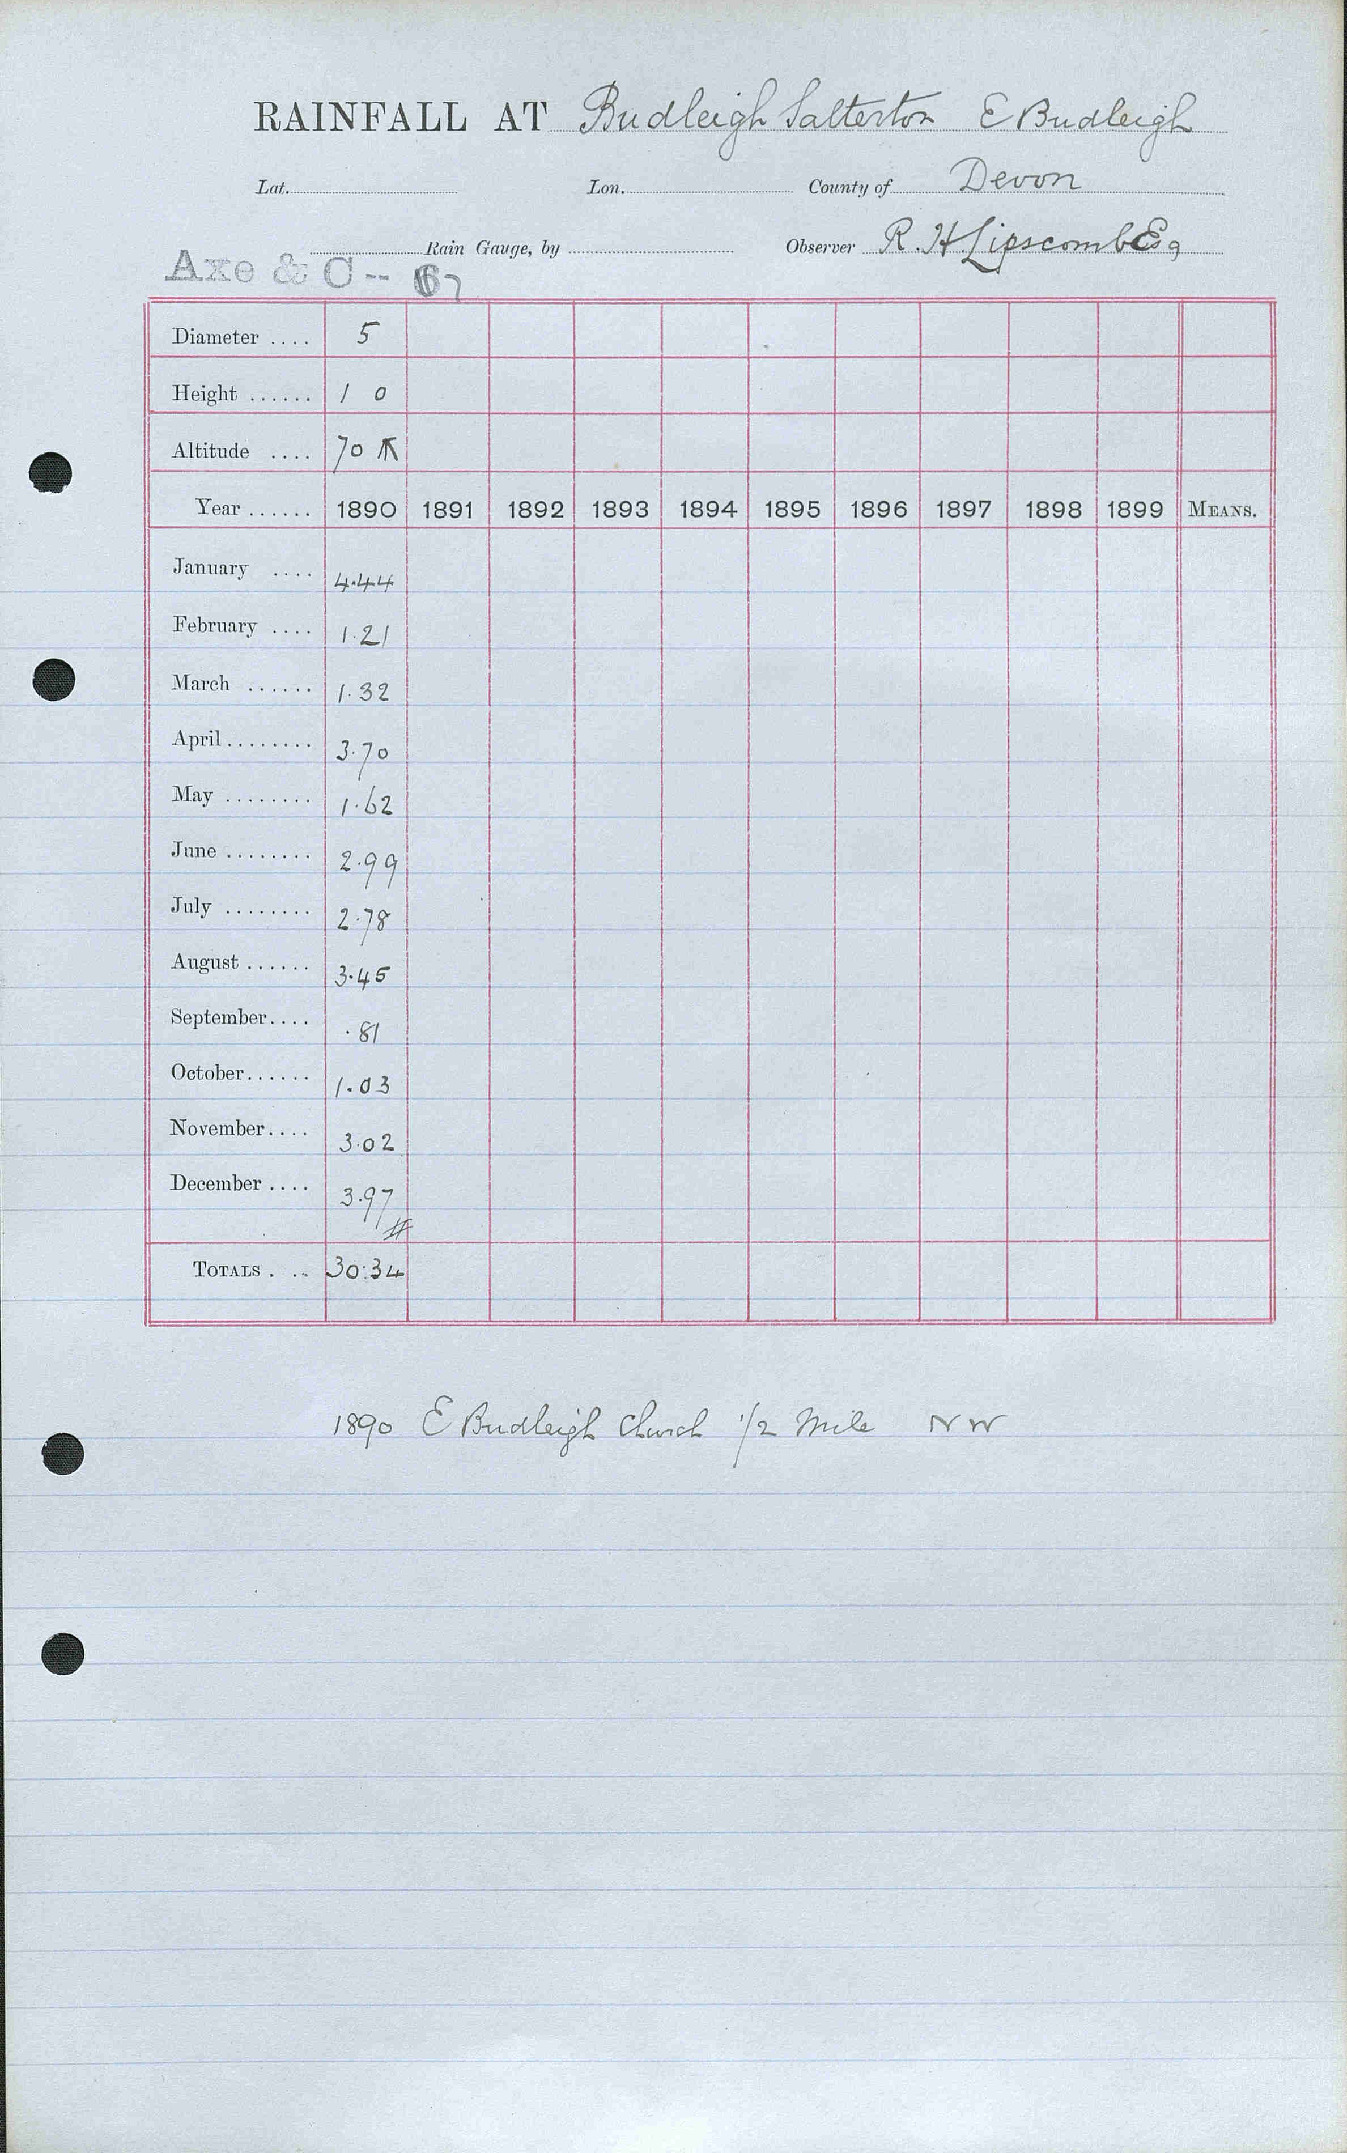 RAINFALL AT Budleigh Salterton E Budleigh
Lat. Lon. County of Devon
Rain Gauge, by Observer R. H Lipscomb Esq
Axe & C -- 67
Diameter .... 5
Height ...... 1 0
Altitude .... 70
Year ...... 1890 1891 1892 1893 1894 1895 1896 1897 1898 1899 MEANS.
January .... 4.44
February .... 1.21
March ...... 1.32
April ........ 3.70
May ........ 1.62
June ........ 2.99
July ........ 2.78
August ...... 3.45
September .... .81
October ...... 1.03
November .... 3.02
December .... 3.97
TOTALS . .. 30.34
1890 E Budleigh Church 1/2 Mile NW